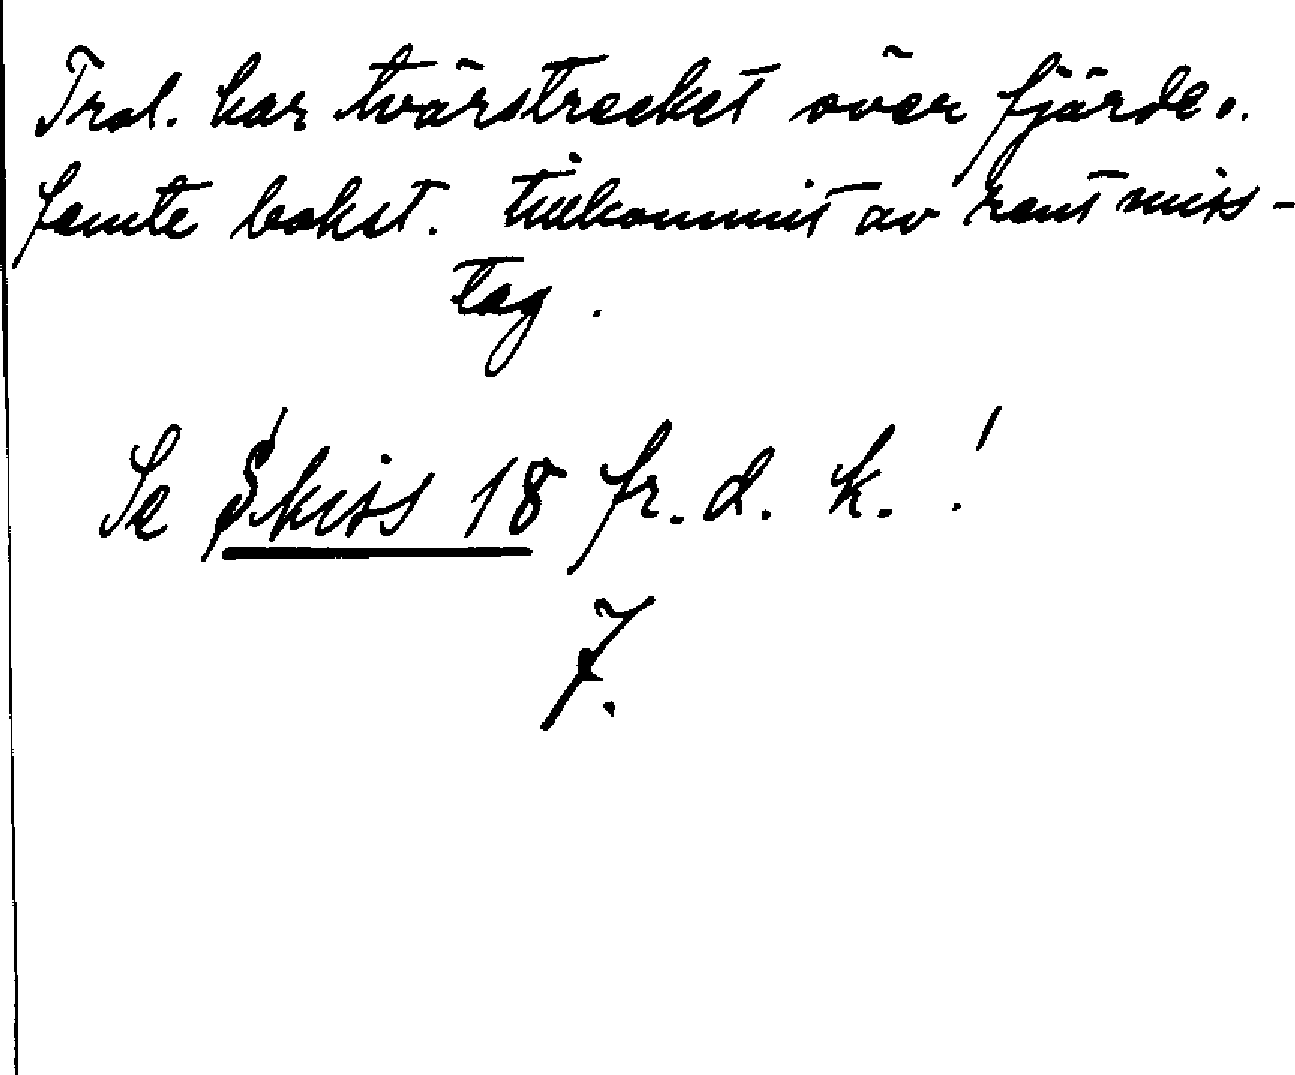 Trol. har tvärstrecket över fjärde o.
femte bokst. tillkommit av rent miss-
tag.
Se Skiss 18 fr. d. k.!
7.